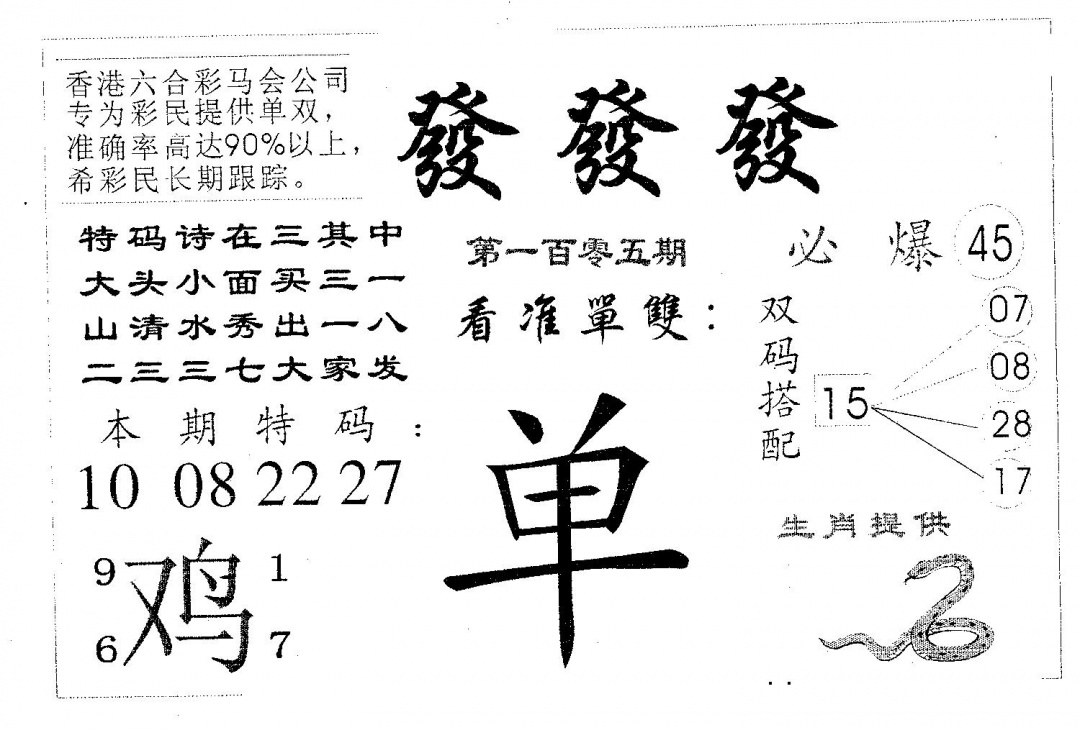 香港六合彩马会公司
专为彩民提供单双，
准确率高达90%以上，
希彩民长期跟踪。
發發發
特码诗在三其中
大头小面买三一
山清水秀出一八
二三三七大家发
本期特码：
10 08 22 27
9 1
鸡
6 7
第一百零五期
看准單雙：
单
必爆45
双码搭配
15
07
08
28
17
生肖提供